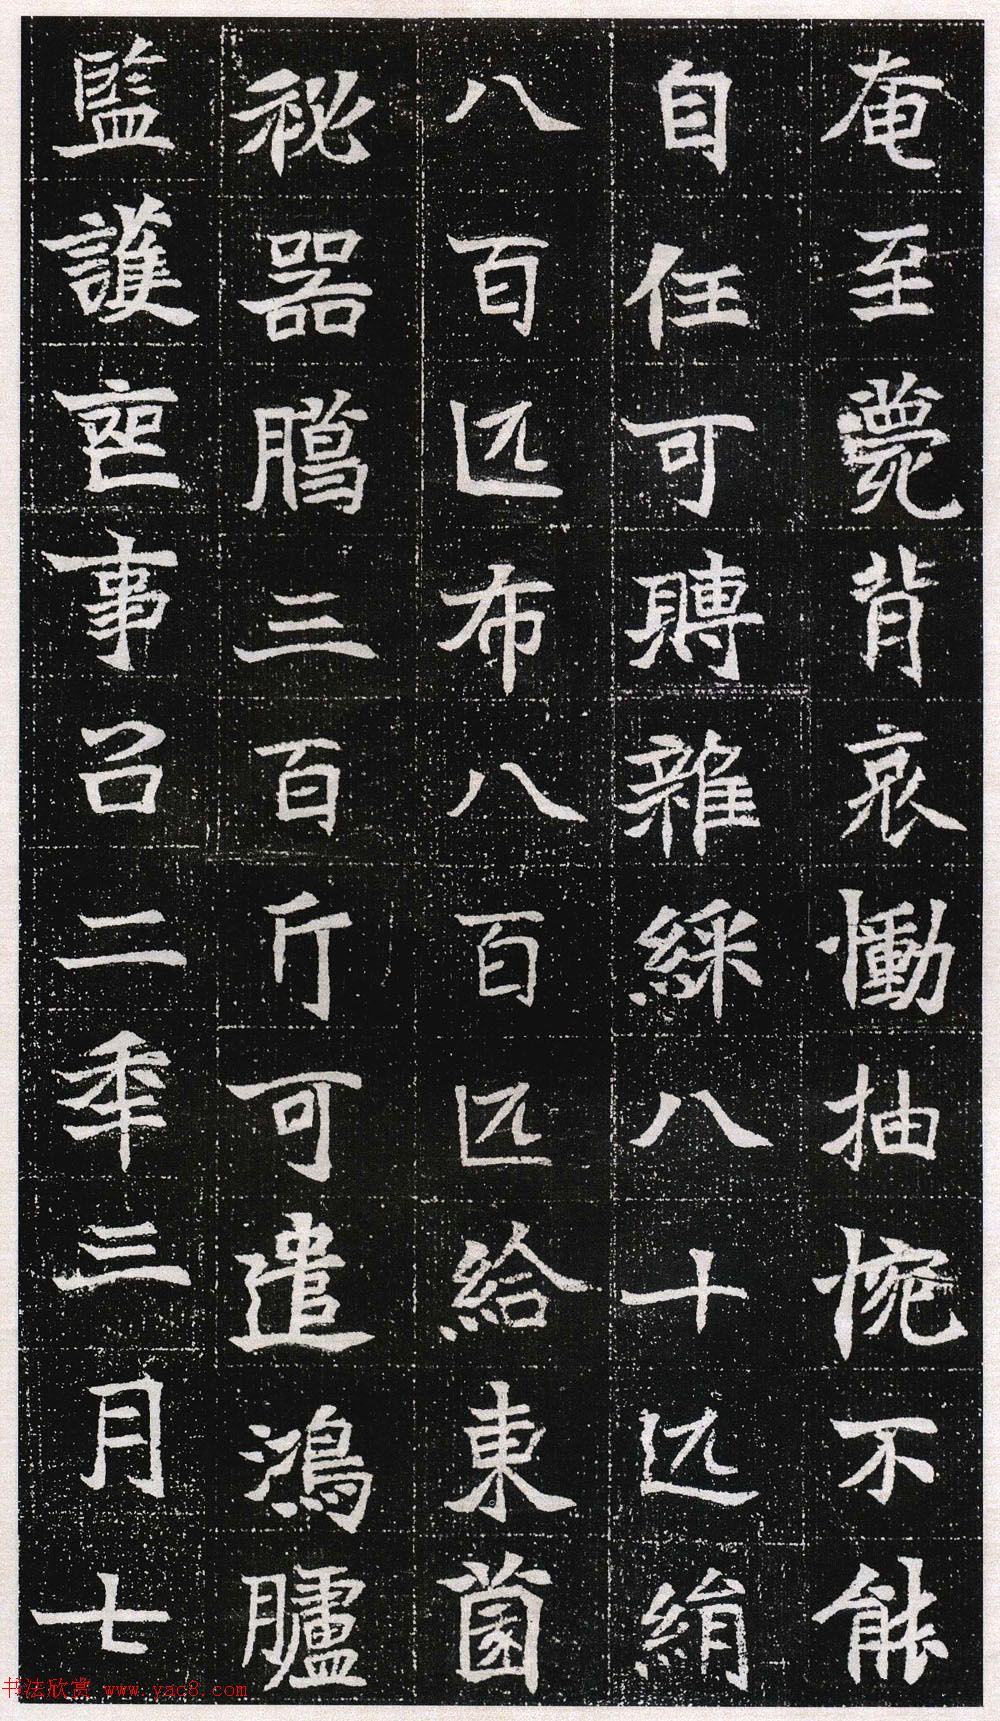 奄至薨背哀慟抽惋不能
自任可賻雜綵八十匹絹
八百匹布八百匹給東園
秘器臈三百斤可遣鴻臚
監護喪事召二年三月七
书法欣赏 www.yac8.com